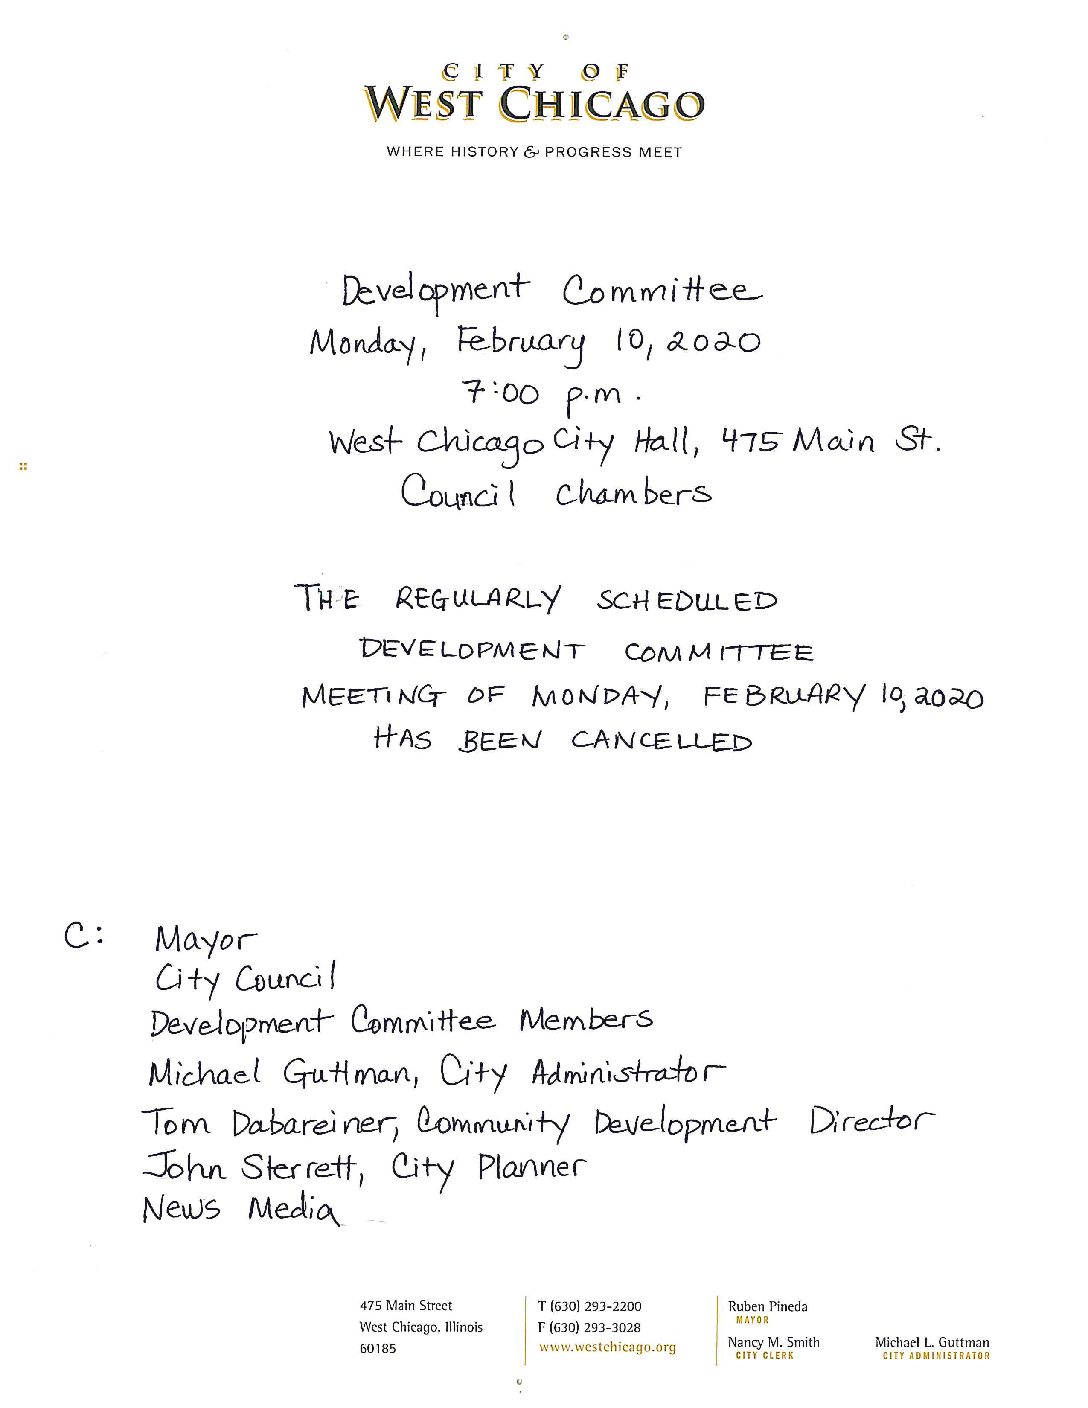 CITY OF
WEST CHICAGO
WHERE HISTORY & PROGRESS MEET
Development Committee
Monday, February 10, 2020
7:00 p.m.
West Chicago City Hall, 475 Main St.
Council Chambers
THE REGULARLY SCHEDULED
DEVELOPMENT COMMITTEE
MEETING OF MONDAY, FEBRUARY 10, 2020
HAS BEEN CANCELLED
C: Mayor
City Council
Development Committee Members
Michael Guttman, City Administrator
Tom Dabareiner, Community Development Director
John Sterrett, City Planner
News Media
475 Main Street
West Chicago, Illinois
60185
T (630) 293-2200
F (630) 293-3028
www.westchicago.org
Ruben Pineda
MAYOR
Nancy M. Smith
CITY CLERK
Michael L. Guttman
CITY ADMINISTRATOR